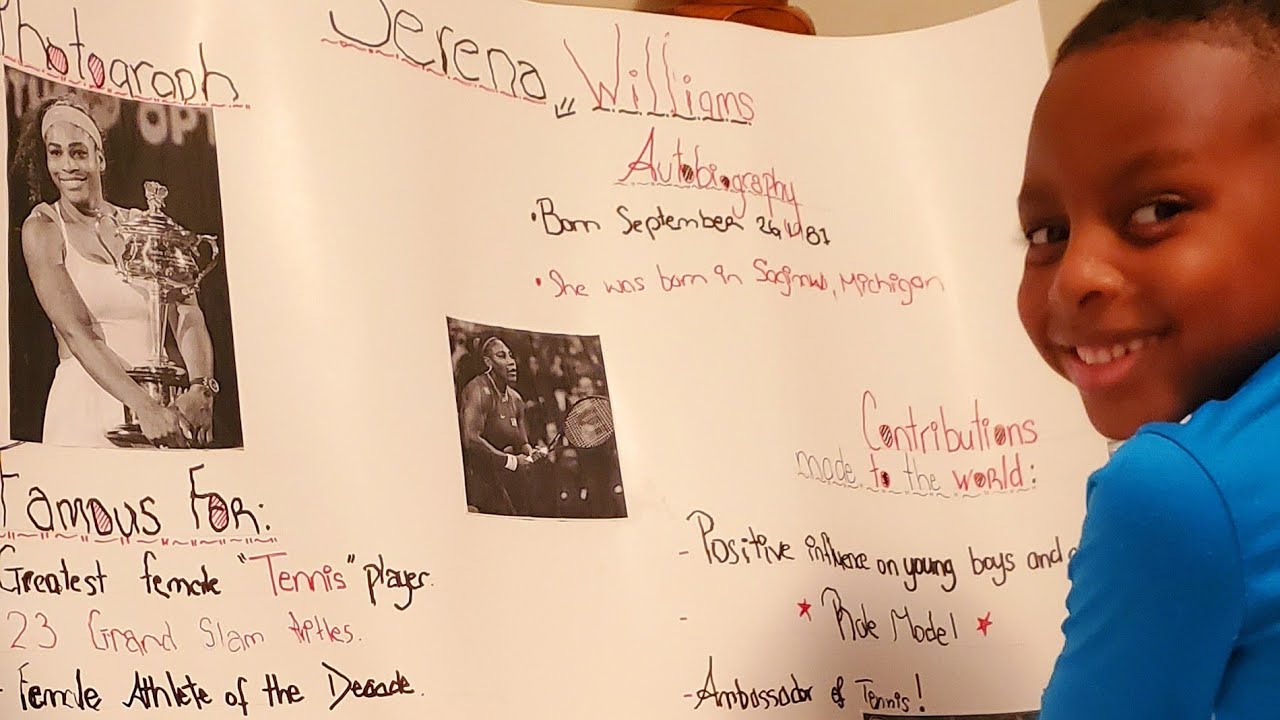 Serena Williams
Photograph
OP
Autobiography
•Born September 26, 1981
•She was born in Saginaw, Michigan
Famous For:
Greatest female "Tennis" player.
23 Grand Slam titles.
- Female Athlete of the Decade.
Contributions
made to the world:
- Positive influence on young boys and
- Role Model
- Ambassador of Tennis!